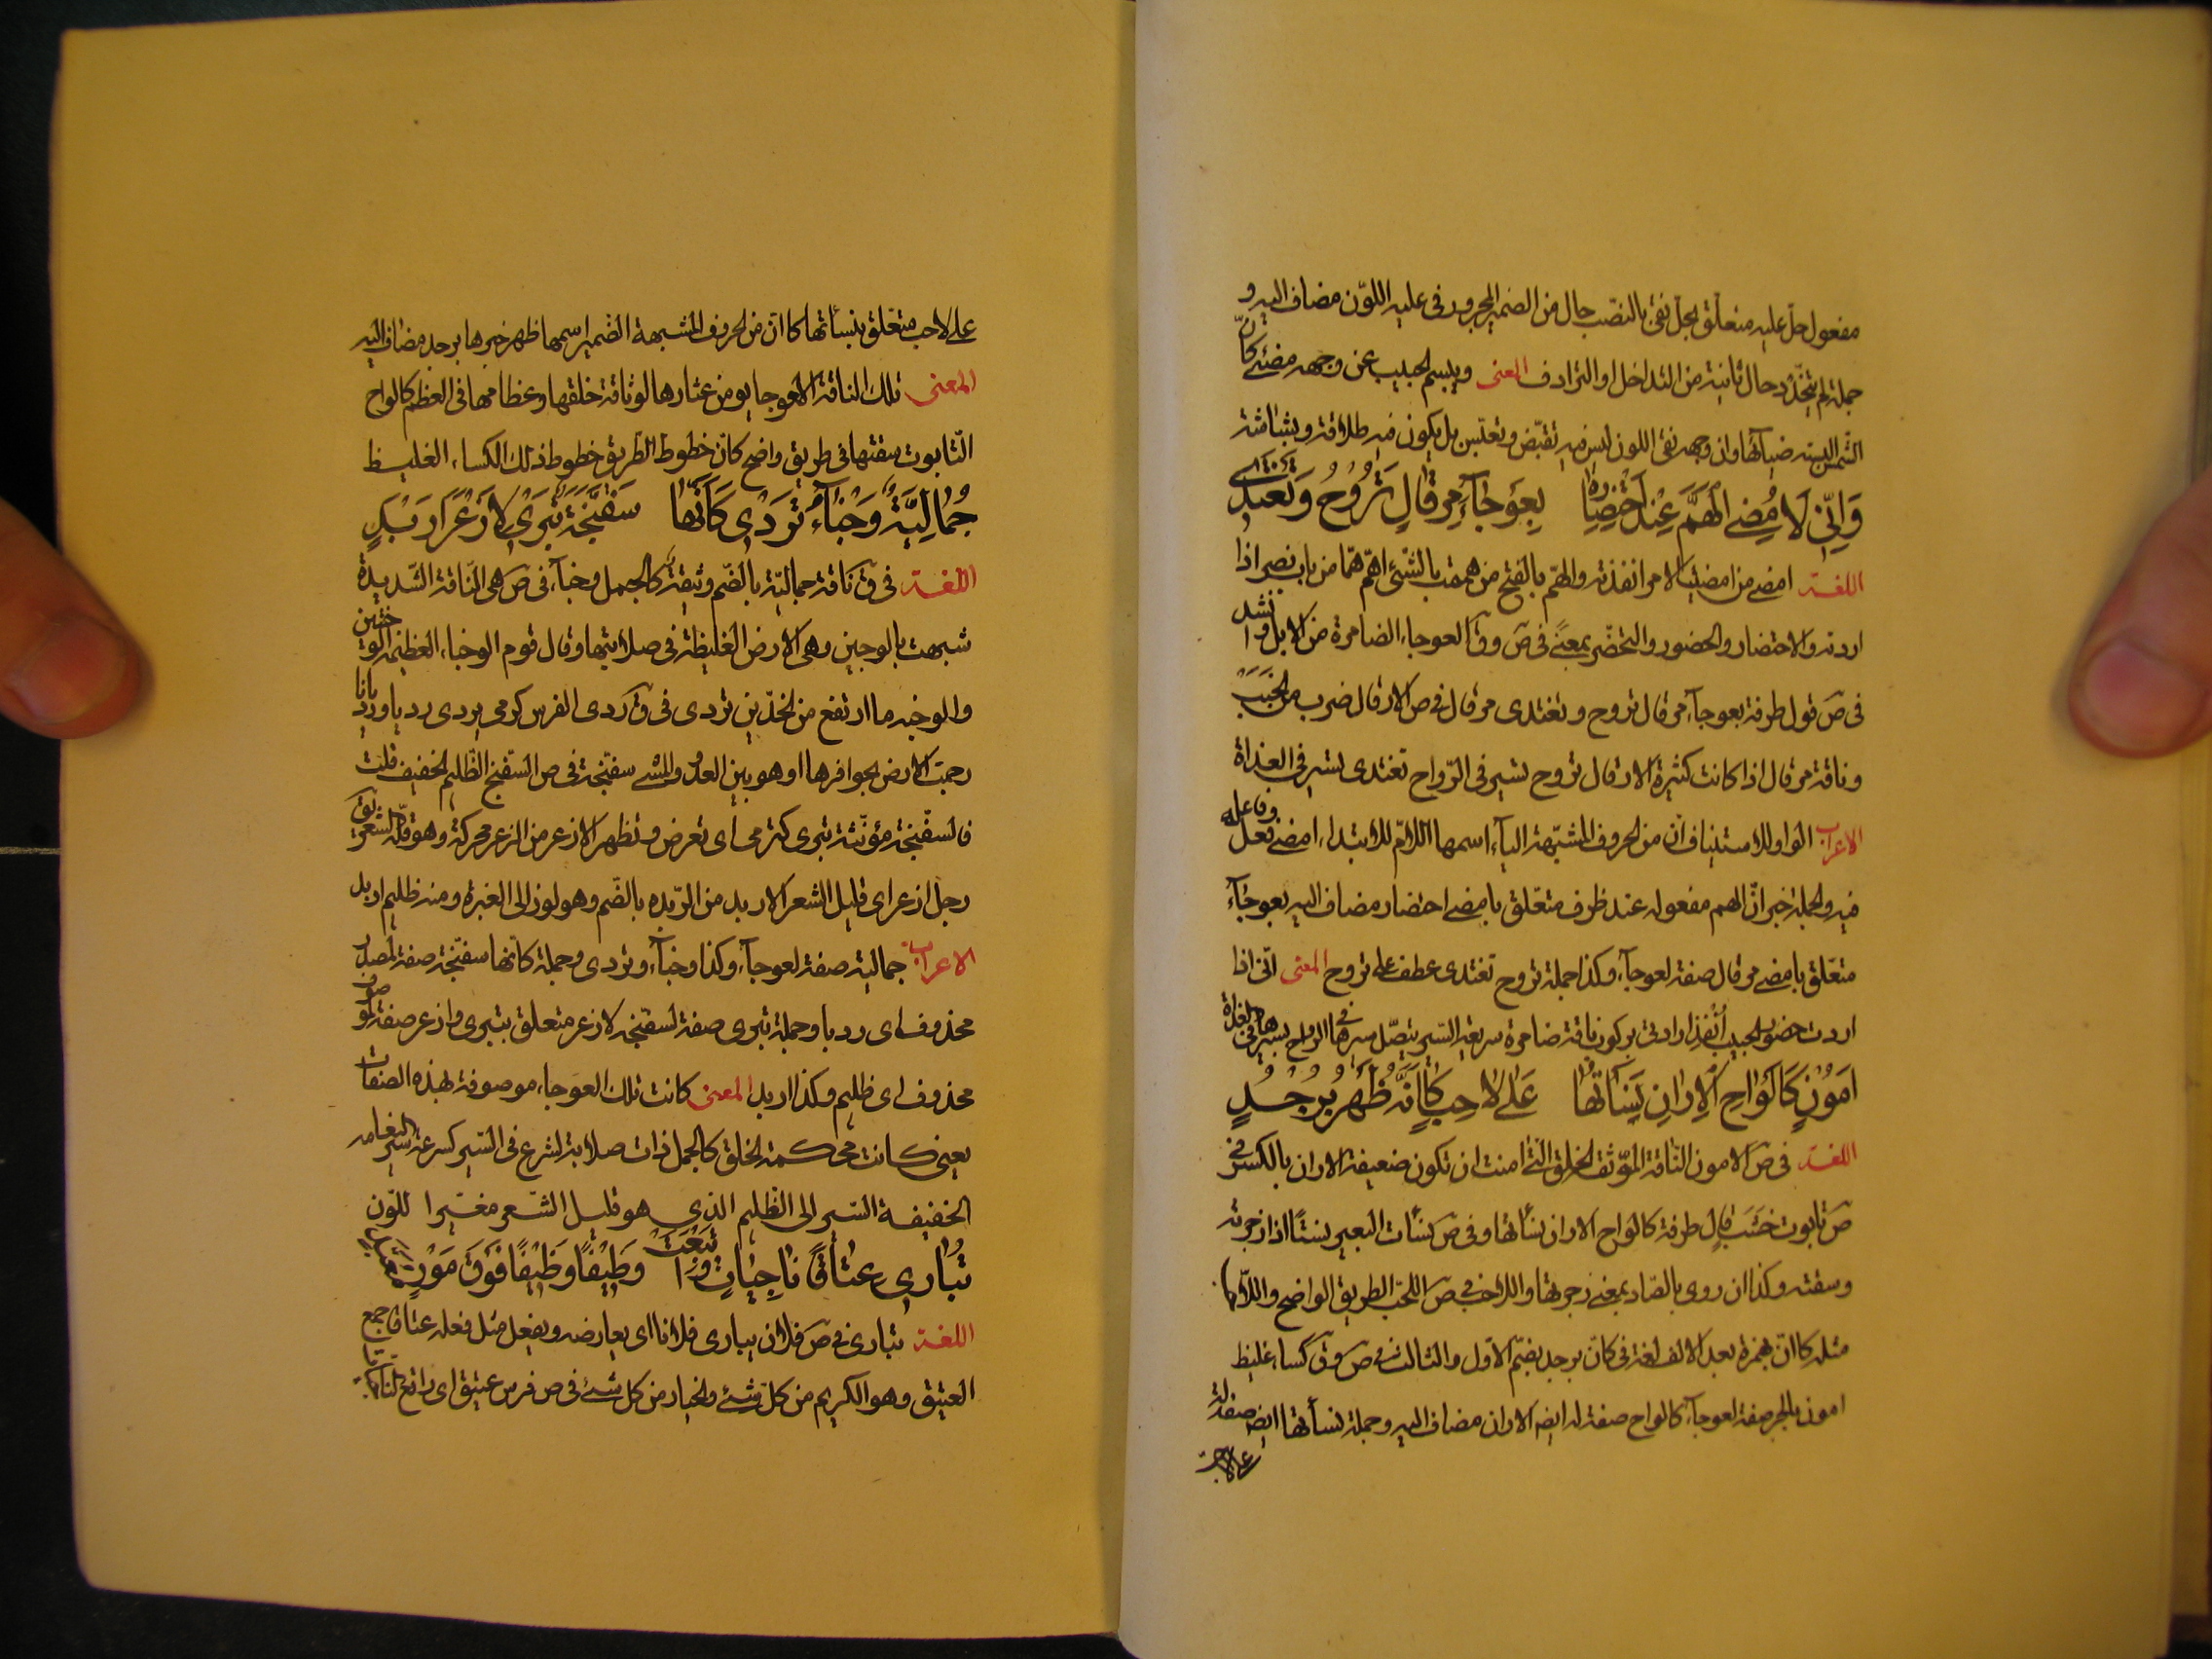 مفعول حلّ عليه متعلّق بحلّ نقى بالنصب حال من الضمير المجرور فى عليه اللوّن مضاف اليه و
جملة لم يتخدّد حال ثانية من التداخل والترادف المعنى ويبسم الحبيب عن وجهه مضئ كانّ
الشمس البسته ضيائها وان وجهه نقى اللون ليس فيه تقبّض وتعبّس بل يكون فيه طلاقة وبشاشة
وَاِنّى لَاُمْضِى الْهَمَّ عِنْدَ احْتِضَارِهِ بِعَوْجَآءَ مِرْقَالٍ تَرُوحُ وَتَغْتَدِى
اللغة امضى من امضيت الامر انفذته والهمّ بالفتح من هممت بالشئ اهمّ همّا من باب نصر اذا
اردته والاحتضار والحضور والتحضّر بمعنى فى ص وق العوجاء الضامرة من الابل وانشد
فى ص قول طرفة بعوجآء مرقال تروح وتغتدى مرقال فى ص الارقال ضرب من الخبب
وناقة مرقال اذا كانت كثيرة الارقال تروح تسير فى الرّواح تغتدى تسير فى الغداة
الاعراب الواو للاستيناف انّ من الحروف المشبّهة الياء اسمها اللام للابتداء امضى فعل وفاعله
فيه والجملة خبر انّ الهم مفعوله عند ظرف متعلّق بامضى احتضار مضاف اليه بعوجآء
متعلّق بامضى مرقال صفة لعوجآء وكذا جملة تروح تغتدى عطف على تروح المعنى انّى اذا
اردت حضور الحبيب انفذ ارادتى بركوب ناقة ضامرة سريعة السّير يتصّل سيرها فى الرواح بسيرها فى الغداة
اَمُوْنٍ كَاَلْوَاحِ الْاِرَانِ نَسَأْتُهَا عَلٰى لَاحِبٍ كَاَنَّهُ ظَهْرُ بُرْجُدٍ
اللغة فى ص الامون النّاقة الموثّقة الخلق الّتى امنت ان تكون ضعيفة الاران بالكسر فى
ص تابوت خشب قال طرفة كالواح الاران نسأتها وفى ص نسأت البعير نسئًا اذا زجرته
وسقته وكذا ان روى بالصّاد بمعنى زجرتها واللاحب فى ص اللحب الطريق الواضح واللّاحب
مثله كاانّ بهمزة بعد الالف لغة فى كانّ برجد بضمّ الاوّل والثالث فى ص وق كساء غليظ
امون بالجر صفة لعوجآء كالواح صفة له ايضا الاران مضاف اليه وجملة نسأتها ايضا صفة له
على لاحب
على لاحب متعّلق بنسأتها كاانّ من الحروف المشبهة الضّمير اسمها ظهر خبرها برجد مضاف اليه
المعنى تلك الناقة العوجا يومن عثارها لوثاقة خلقها وعظامها فى العظم كالواح
التّابوت سقتها فى طريق واضح كانّ خطوط الطّريق خطوط ذلك الكساء الغليظ
جُمَالِيَّةٍ وَجْنَآءَ تَرْدِى كَاَنَّهَا سَفَنَّجَةٌ تَبْرِى لِاَزْعَرَ اَرْبَدِ
اللغة فى ق ناقة جماليّة بالضّم وثيقة كالجمل وجنآء فى ص هى النّاقة الشّديدة
شبهت بالوجين وهى الارض الغليظة فى صلابتها وقال قوم الوجناء العظيمة الوجنتين
والوجنه ما ارتفع من الخدّين تردى فى ق ردى الفرس كرمى يردى رديا وردّيانا
رجمت الارض بحوافرها او هو بين العدو والمشى سفنجة فى ص السفنج الظّليم الخفيف قلت
فالسفّنجة مؤنّثة تبرى كترمى اى تعرض وتظهر الازعر من الزعر محركة وهو قلّة الشعر يق
رجل ازعر اى قليل الشعر الاربد من الرّبده بالضّم وهو لون الى الغبرة ومنه ظليم اربد
الاعراب جمالية صفة لعوجآء وكذا وجنآء وتردى وجملة كانّها سفنّجة صفة لمصدر
محذوف اى رديا وجملة تبرى صفة لسفنّجه لازعر متعلق بتبرى وازعر صفة لموصوف
محذوف اى ظليم وكذا اربد المعنى كانت تلك العوجاء موصوفة بهذه الصّفات
يعنى كانت محكمة الخلق كالجمل ذات صلابة تسرع فى السّير كسرعة سير النعامه
الخفيفة السّير الى الظليم الذى هو قليل الشّعر مغبّرا للّون
تُبَارِى عِتَاقًا نَاجِيَاتٍ وَاَتْبَعَتْ وَظِيْفًا وَظِيْفًا فَوْقَ مَوْرٍ مُعَبَّدِ
اللغة تبارى فى ص فلان يبارى فلانا اى يعارضه ويفعل مثل فعله عتاق جمع
العتيق وهو الكريم من كلّ شئ والخيار من كل شئ فى ص فرس عتيق اى رائع